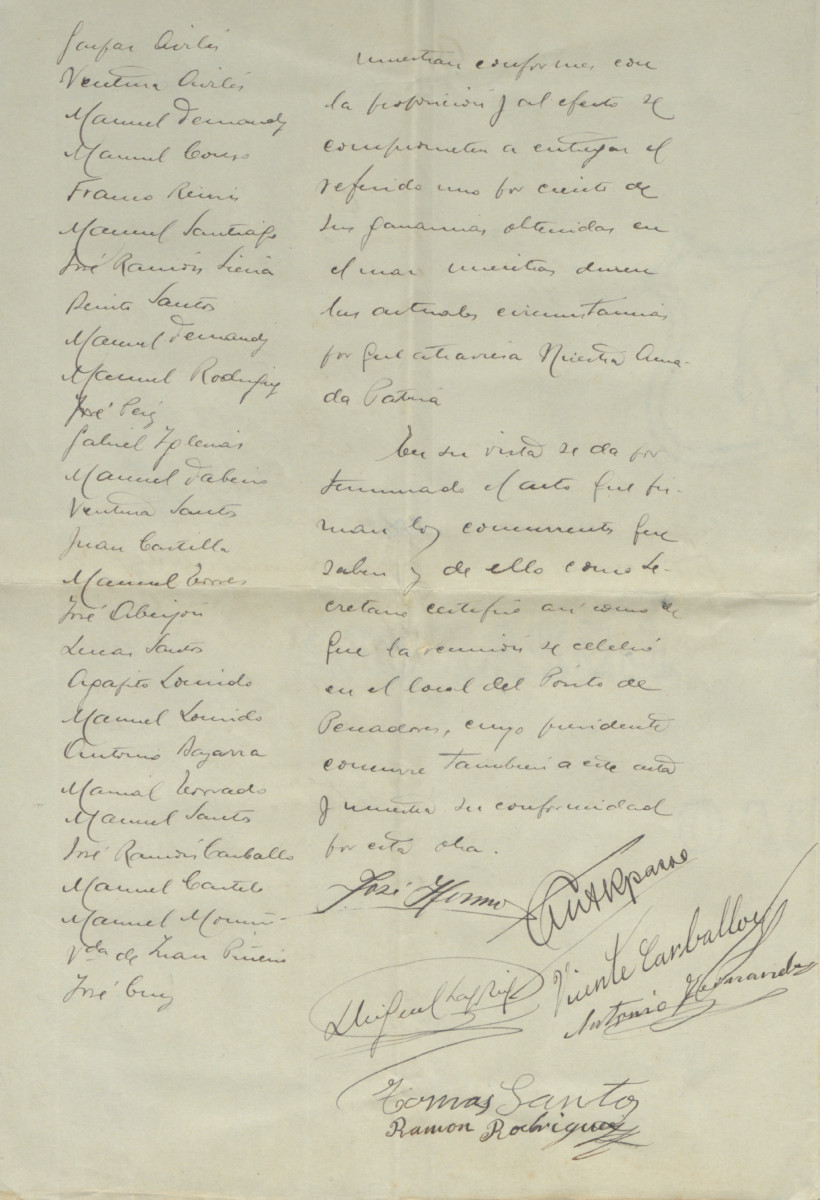 Gaspar Avilés
Ventura Avilés
Manuel Fernandz
Manuel
Franco
Manuel Santiago
José Ramón
Benito Santos
Manuel Fernandz
Manuel Rodriguez
José
Gabriel Yglesias
Manuel
Ventura Santos
Juan Castilla
Manuel Torres
José Abeijón
Lucas Santos
Agapito Lourido
Manuel Lourido
Antonio
Manuel Torrado
Manuel Santos
José Ramón Carballo
Manuel Castelo
Manuel
Vda de Juan Piñeiro
José
muestran conformes con
la proposición y al efecto se
comprometen a entregar el
referido uno por ciento de
sus ganancias obtenidas en
el mar mientras duren
las actuales circunstancias
por que atraviesa Nuestra Ama-
da Patria
En su vista se da por
terminado el acto que fir-
man los concurrentes que
saben y de ello como Se-
cretario certifico así como de
que la reunión se celebró
en el local del Pósito de
Pescadores, cuyo presidente
concurre también a este acto
y muestra su conformidad
por esta acta.
José
Vicente Carballo
Antonio Hernandez
Tomas Santos
Ramon Rodriguez